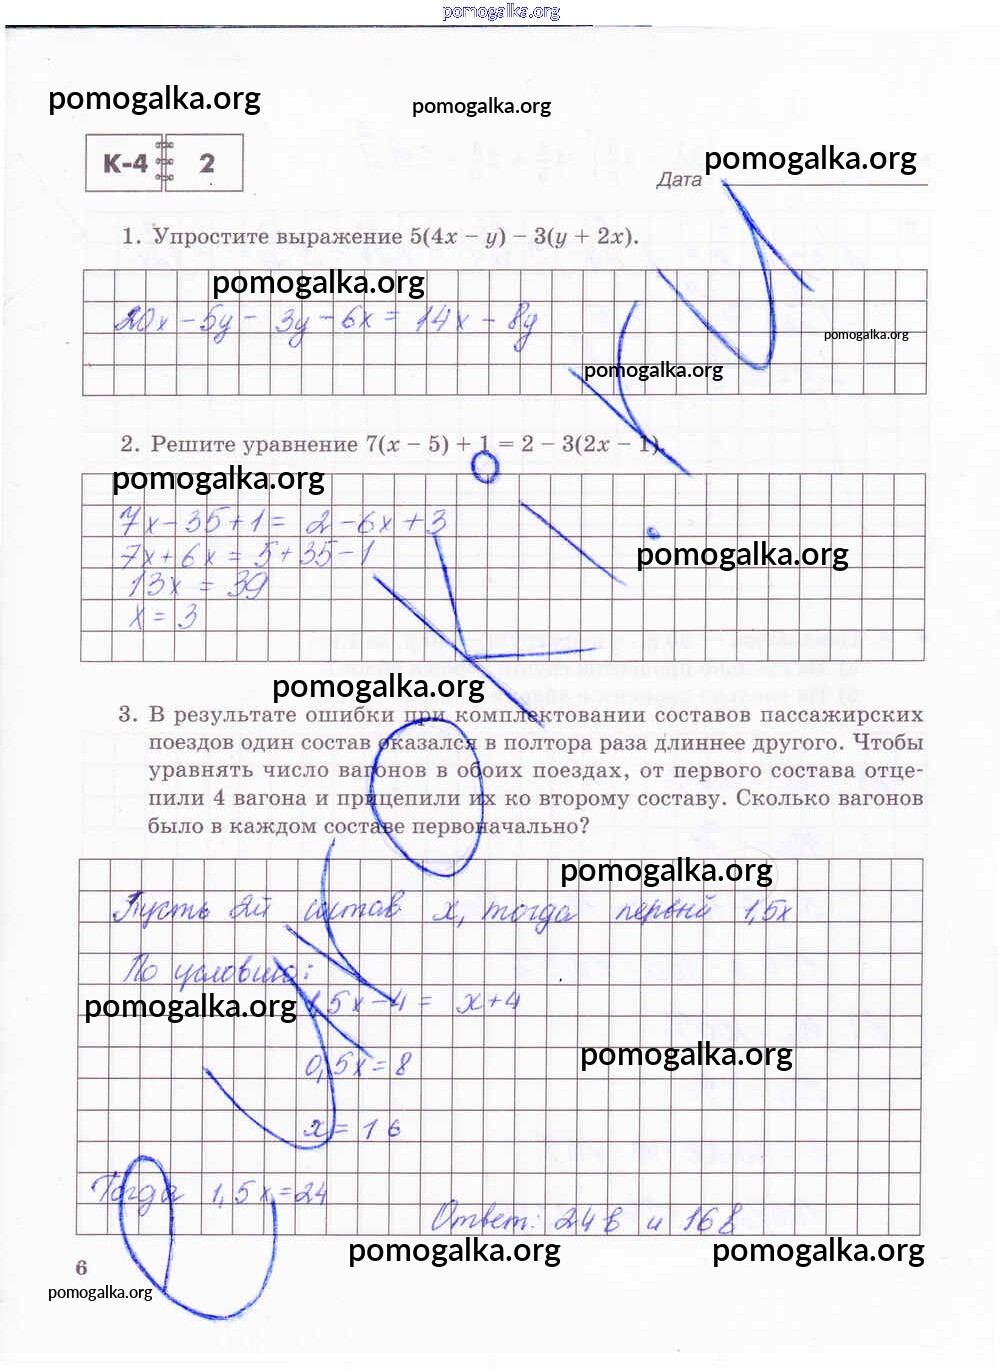 pomogalka.org
pomogalka.org
pomogalka.org
К-4 2
pomogalka.org
Дата
1. Упростите выражение 5(4x − y) − 3(y + 2x).
pomogalka.org
20x − 5y − 3y − 6x = 14x − 8y
pomogalka.org
pomogalka.org
2. Решите уравнение 7(x − 5) + 1 = 2 − 3(2x − 1).
pomogalka.org
7x − 35 + 1 = 2 − 6x + 3
7x + 6x = 5 + 35 − 1
pomogalka.org
13x = 39
x = 3
pomogalka.org
3. В результате ошибки при комплектовании составов пассажирских
поездов один состав оказался в полтора раза длиннее другого. Чтобы
уравнять число вагонов в обоих поездах, от первого состава отце-
пили 4 вагона и прицепили их ко второму составу. Сколько вагонов
было в каждом составе первоначально?
pomogalka.org
Пусть 2й состав x, тогда первый 1,5x
По условию:
pomogalka.org
1,5x − 4 = x + 4
pomogalka.org
0,5x = 8
x = 16
Тогда 1,5x = 24
Ответ: 24 в и 16 в
pomogalka.org
pomogalka.org
6
pomogalka.org